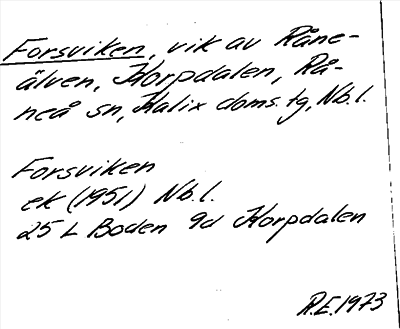 Forsviken, vik av Råne-
älven, Korpdalen, Rå-
neå sn, Kalix doms.tg, Nb.l.
Forsviken
ek (1951) Nb.l.
25 L Boden 9d Korpdalen
R.E. 1973